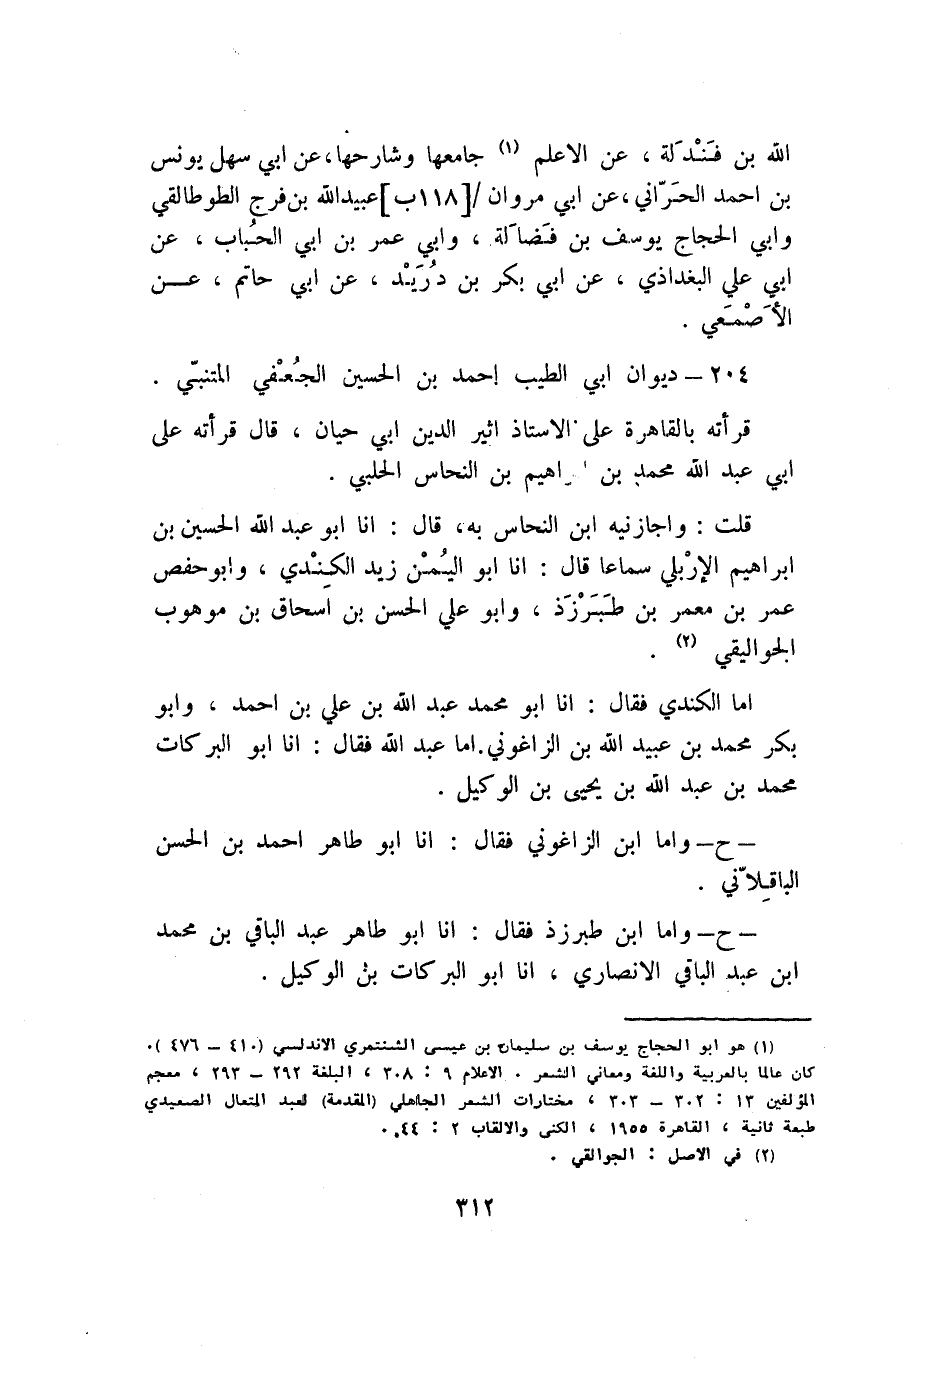 الله بن فَنْدَلة ، عن الاعلم (١) جامعها وشارحها، عن ابي سهل يونس
بن احمد الحَرّاني ، عن ابي مروان /[١١٨ب] عبيدالله بن فرج الطوطالقي
وابي الحجاج يوسف بن فَضَالَة ، وابي عمر بن ابي الحُباب ، عن
ابي علي البغداذي ، عن ابي بكر بن دُرَيْد ، عن ابي حاتم ، عــن
الأَصْمَعي .
٢٠٤ – ديوان ابي الطيب احمد بن الحسين الجُعْفي المتنبّي .
قرأته بالقاهرة على الاستاذ اثير الدين ابي حيان ، قال قرأته على
ابي عبد الله محمد بن راهيم بن النحاس الحلبي .
قلت : واجازنيه ابن النحاس به، قال : انا ابو عبد الله الحسين بن
ابراهيم الإرْبلي سماعا قال : انا ابو اليُمْن زيد الكِنْدي ، وابو حفص
عمر بن معمر بن طَبَرْزَذ ، وابو علي الحسن بن اسحاق بن موهوب
الجواليقي (٢) .
اما الكندي فقال : انا ابو محمد عبد الله بن علي بن احمد ، وابو
بكر محمد بن عبيد الله بن الزاغوني. اما عبد الله فقال : انا ابو البركات
محمد بن عبد الله بن يحيى بن الوكيل .
– ح – واما ابن الزاغوني فقال : انا ابو طاهر احمد بن الحسن
الباقِلاّني .
– ح – واما ابن طبرزذ فقال : انا ابو طاهر عبد الباقي بن محمد
ابن عبد الباقي الانصاري ، انا ابو البركات بن الوكيل .
(١) هو ابو الحجاج يوسف بن سليمان بن عيسى الشنتمري الاندلسي (٤١٠ – ٤٧٦ ).
كان عالما بالعربية واللغة ومعاني الشعر . الاعلام ٩ : ٣٠٨ ، البلغة ٢٩٢ – ٢٩٣ ، معجم
المؤلفين ١٣ : ٣٠٢ – ٣٠٣ ، مختارات الشعر الجاهلي (المقدمة) لعبد المتعال الصعيدي
طبعة ثانية ، القاهرة ١٩٥٥ ، الكنى والالقاب ٢ : ٤٤.
(٢) في الاصل : الجوالقي .
٣١٢